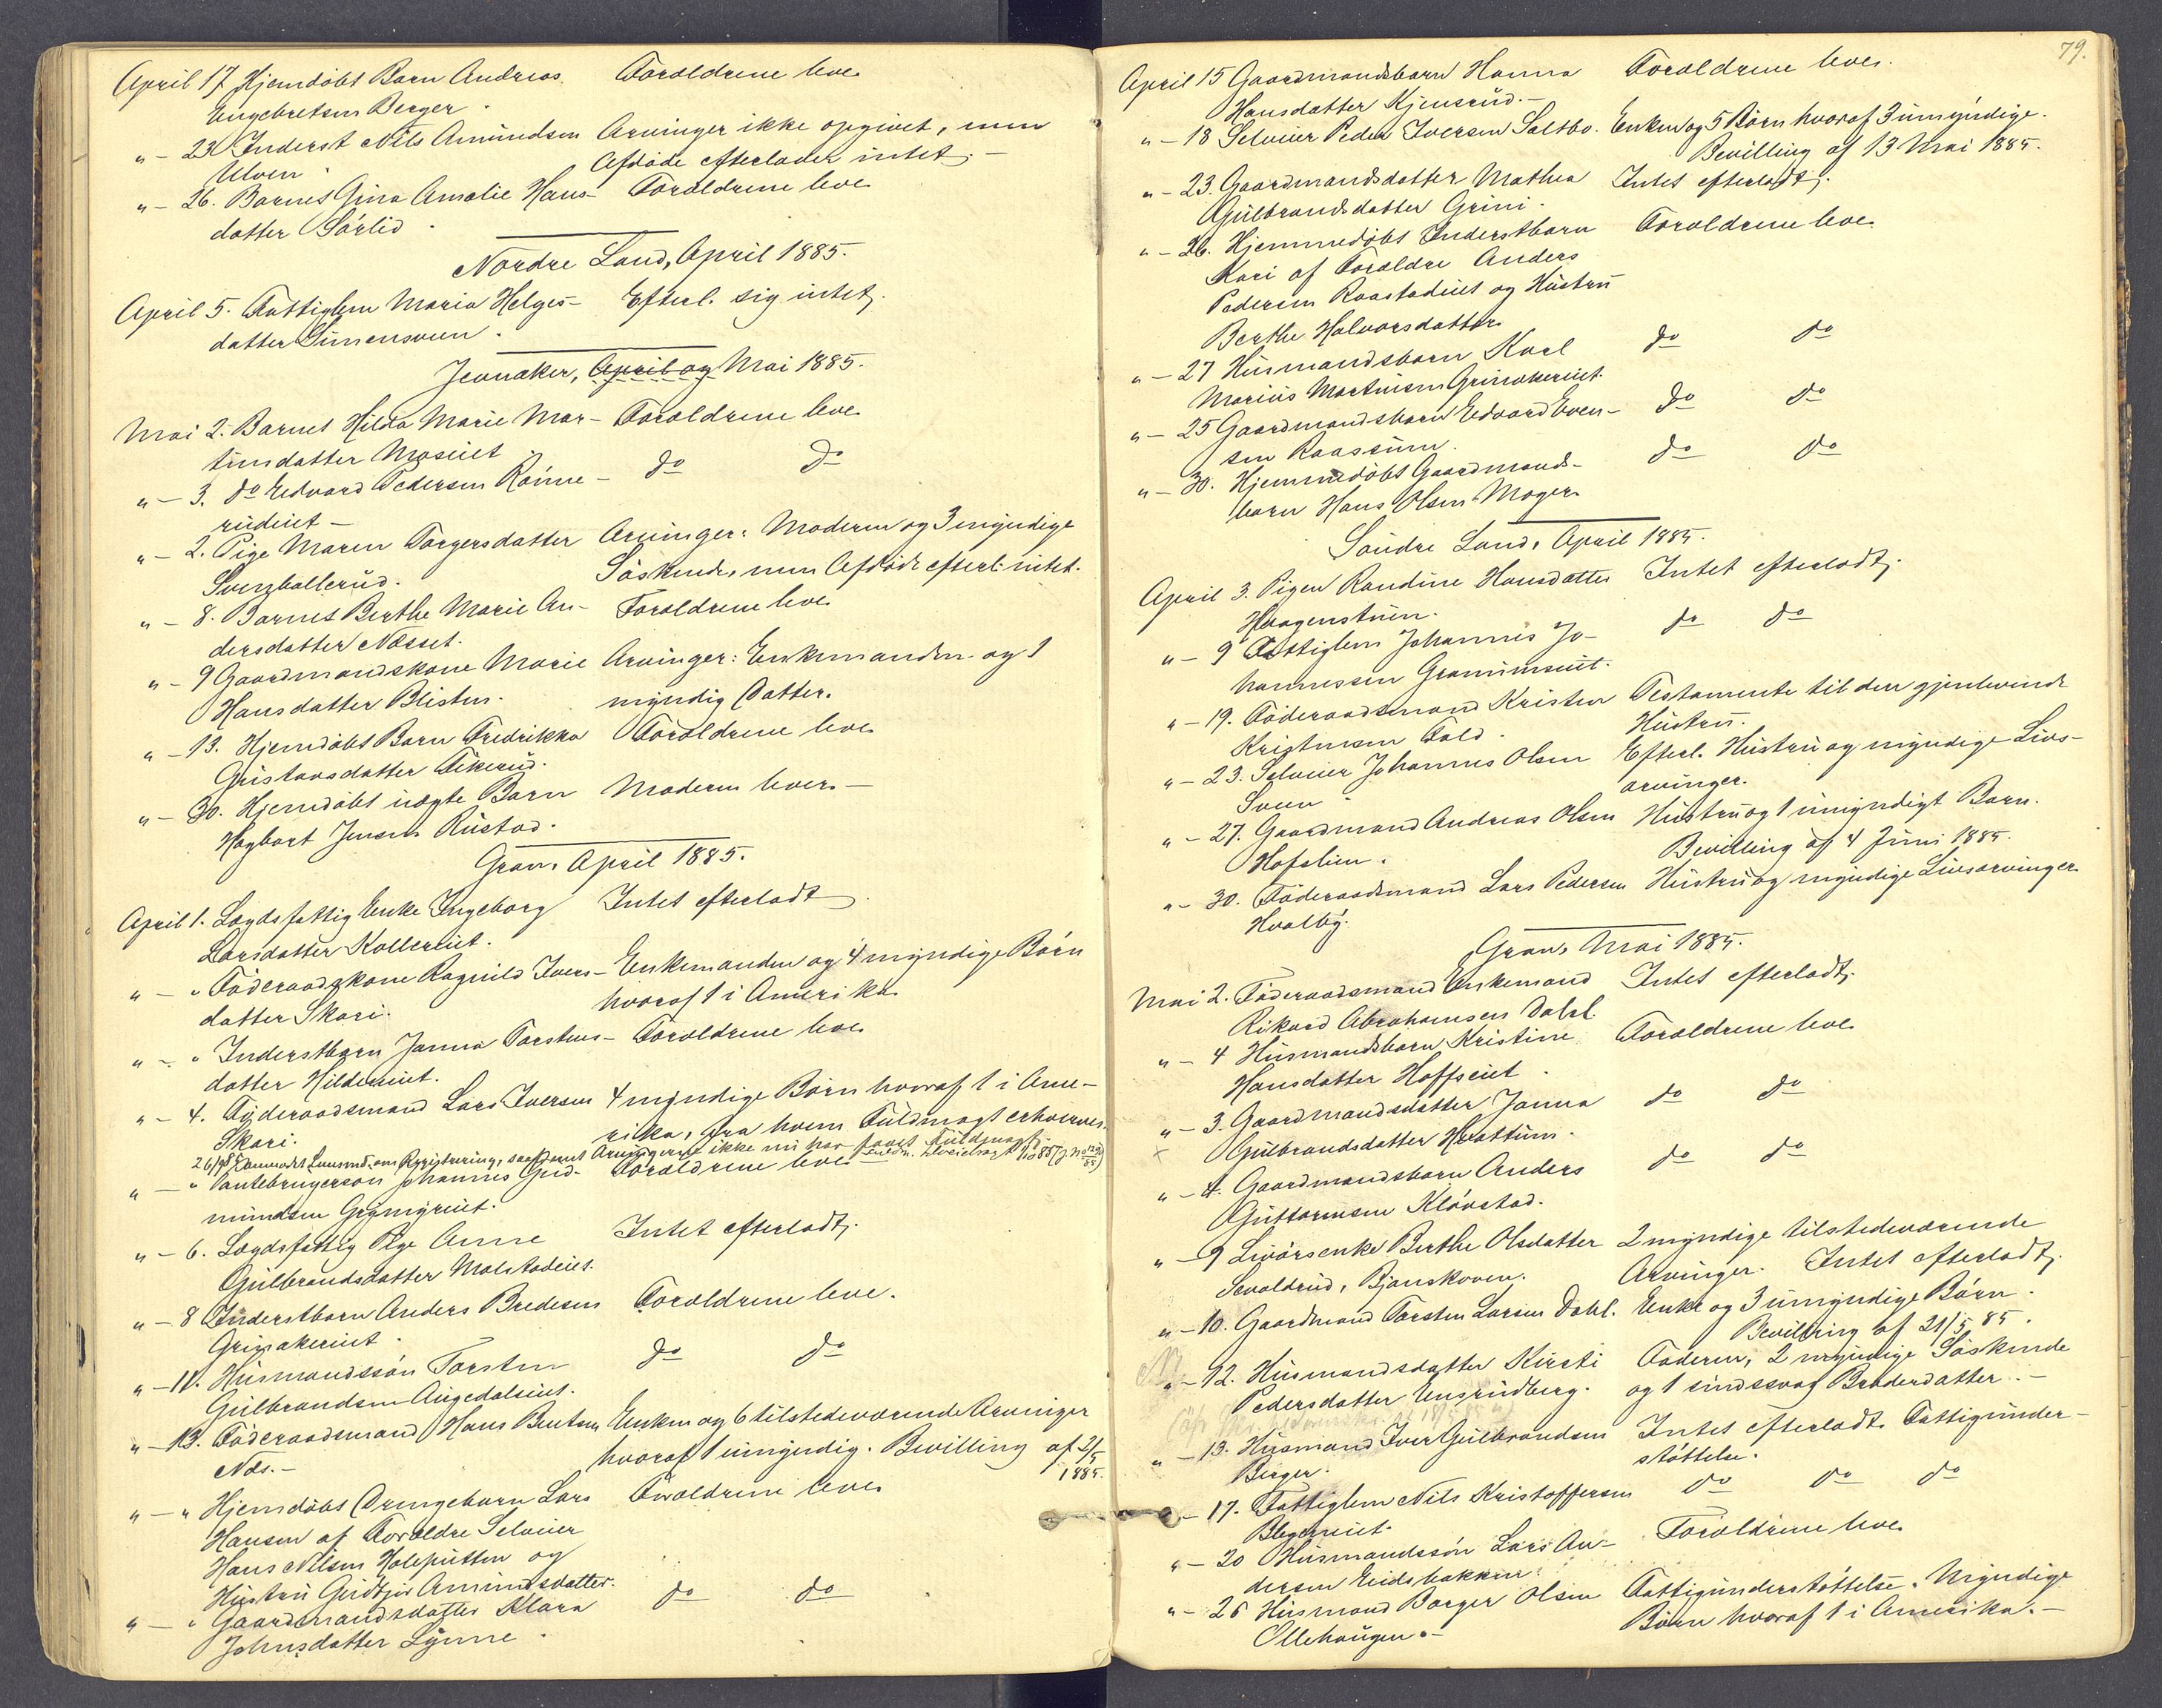 April 17 Hjemdøbt Barn Andreas Forældrene leve
Engebretsen Berger.
" - 23 Inderst Nils Amundsen Arvinger ikke opgivet, men
Ulven. Afdøde efterlader intet. -
" - 26. Barnet Gina Amalie Hans- Forældrene leve
datter Sørlid.
Nordre Land, April 1885.
April 5. Fattiglem Maria Helges- Efterl. sig intet.
datter Simensveen.
Jevnaker, April og Mai 1885.
Mai 2. Barnet Hilda Marie Mar- Forældrene leve
tinsdatter Moseiet
" - 3. do Edvard Pedersen Rønne- do do
rudeiet -
" - 2. Pige Maren Torgersdatter Arvinger: Moderen og 3 myndige
Svenzballerud. Søskende, men Afdøde efterl. intet.
" - 8. Barnet Berthe Marie An- Forældrene leve
dersdatter Næsset.
" - 9 Gaardmandskone Marie Arvinger: Enkemanden og 1
Hansdatter Blisten. myndig Datter.
" - 13. Hjemdøbt Barn Fredrikka Forældrene leve
Gustavsdatter Fikerud.
" - 30. Hjemdøbt uægte Barn Moderen lever. -
Hagbart Jensen Rustad.
Gran, April 1885.
April 1. Lægdsfattig Enke Ingeborg Intet efterladt
Larsdatter Kollereiet.
" - " Føderaadskone Ragnild Ivers- Enkemanden og 4 myndige Børn
datter Skari. hvoraf 1 i Amerika
" - " Inderstbarn Janna Torstens- Forældrene leve
datter Hildeeiet.
" - 4. Føderaadsmand Lars Iversen 4 myndige Børn hvoraf 1 i Ame-
Skari. rika, fra hvem Fuldmagt erhverves.
26/9 85 Lensmd. om Registrering, saafremt Arvingerne ikke nu har faaet Fuldmagt.
" - " Pantebrugersøn Johannes Gud- Forældrene leve
mundsen Grymyreiet.
" - 6. Lægdsfattig Pige Anne Intet efterladt.
Gulbrandsdatter Molstadeiet.
" - 8 Inderstbarn Anders Bredesen Forældrene leve.
Grinakereiet.
" - 11. Husmandssøn Torsten do do
Gulbrandsen Augedalseiet.
" - 13. Føderaadsmand Hans Bentsen Enken og 6 tilstedeværende Arvinger
Næs. - hvoraf 1 umyndig. Bevilling af 2/5
1885.
" - " Hjemdøbt Drengebarn Lars Forældrene leve
Hansen af Forældre Selveier
Hans Nilsen Holeputten og
Hustru Gudbjør Amundsdatter.
" - " Gaardmandsdatter Klara do do
Johnsdatter Lynne.
79.
April 15 Gaardmandsbarn Hanna Forældrene leve.
Hansdatter Kjensrud. -
" - 18 Selveier Peder Iversen Saltbo. Enken og 5 Børn hvoraf 3 umyndige.
Bevilling af 13 Mai 1885.
" - 23. Gaardmandsdatter Mathea Intet efterladt.
Gulbrandsdatter Grini.
" - 26. Hjemmedøbt Inderstbarn Forældrene leve.
Kari af Forældre Anders
Pedersen Raastadeiet og Hustru
Berthe Halvorsdatter
" - 27 Husmandsbarn Karl do do
Marius Martinsen Grinakereiet.
" - 25 Gaardmandsbarn Edvard Even- do do
sen Raassum.
" - 30. Hjemmedøbt Gaardmands- do do
barn Hans Olsen Moger
Søndre Land, April 1885.
April 3. Pigen Randine Hansdatter Intet efterladt.
Haagenstuen.
" - 9 Fattiglem Johannes Jo- do do
hannessen Grammseiet.
" - 19. Føderaadsmand Kristen Testamente til den gjenlevende
Kristensen Fald. Hustru.
" - 23. Selveier Johannes Olsen Efterl. Hustru og myndige Livs-
Sveen arvinger.
" - 27. Gaardmand Andreas Olsen Hustru og 1 umyndigt Barn.
Hofslien. Bevilling af 4 Juni 1885.
" - 30. Føderaadsmand Lars Pedersen Hustru og myndige Livsarvinger
Hvalby.
Gran, Mai 1885.
Mai 2. Føderaadsmand Enkemand Intet efterladt.
Rikard Abrahamsen Dahl.
" - 4 Husmandsbarn Kristine Forældrene leve
Hansdatter Hoffseiet.
" - 3. Gaardmandsdatter Janna do do
Gulbrandsdatter Hvattum.
" - 4. Gaardmandsbarn Anders do do
Guttormsen Kløvstad.
" - 9 Livørsenke Berthe Olsdatter 2 myndige tilstedeværende
Sevaldrud, Bjønskoven. Arvinger. Intet efterladt.
" - 10. Gaardmand Torsten Larsen Dahl. Enke og 3 umyndige Børn.
Bevilling af 21/5 85.
" - 12. Husmandsdatter Kirsti Faderen, 2 myndige Søskende
Pedersdatter Ensrudberg. og 1 sindssvag Broderdatter. -
" - 13. Husmand Iver Gulbrandsen Intet efterladt. Fattigunder-
Berger. støttelse.
" - 17. Fattiglem Nils Kristoffersen do do do
Blegeneiet.
" - 20 Husmandssøn Lars An- Forældrene leve
dersen Eidsbakken.
" - 25 Husmand Borger Olsen Fattigunderstøttelse. Myndige
Ollehaugen. - Børn hvoraf 1 i Amerika. -